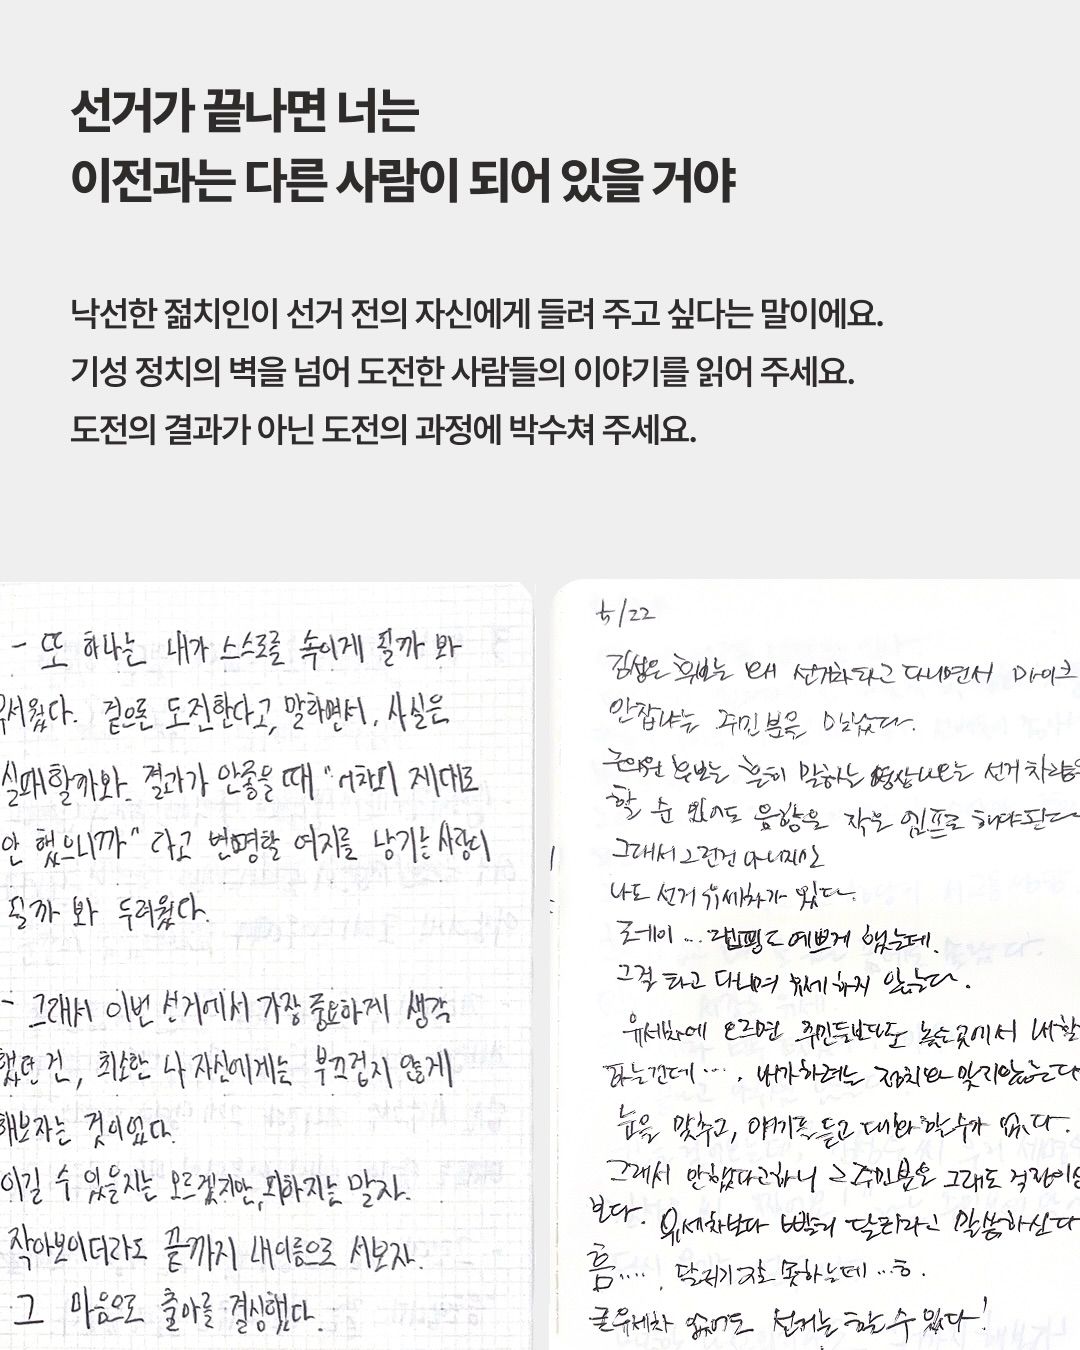 선거가 끝나면 너는
이전과는 다른 사람이 되어 있을 거야
낙선한 젊치인이 선거 전의 자신에게 들려 주고 싶다는 말이에요.
기성 정치의 벽을 넘어 도전한 사람들의 이야기를 읽어 주세요.
도전의 결과가 아닌 도전의 과정에 박수쳐 주세요.
- 또 하나는 내가 스스로를 속이게 될까 봐
서웠다. 겉으론 도전한다고 말하면서, 사실은
실패할까봐. 결과가 안좋을 때 "어차피 제대로
안 했으니까" 라고 변명할 여지를 남기는 사람이
될까 봐 두려웠다.
- 그래서 이번 선거에서 가장 중요하게 생각
했던 건, 최소한 나 자신에게는 부끄럽지 않게
해보자는 것이었다.
이길 수 있을지는 모르겠지만, 피하지는 말자.
작아보이더라도 끝까지 내이름으로 서보자.
그 마음으로 출마를 결심했다.
5/22
김성은 후보는 왜 선거차타고 다니면서 마이크
안잡냐는 주민분을 만났다.
후보는 흔히 말하는 영상나오는 선거차량을
할 순 없어도 음향을 작은 앰프로 해야된다
그래서 그런건 아니지만
나도 선거 유세차가 있다.
랩핑도 예쁘게 했는데.
그걸 타고 다니며 유세하지 않는다.
유세차에 오르면 주민들보다도 높은곳에서 내할
하는건데 ... , 내가하려는 정치와 맞지않는다
눈을 맞추고, 얘기를 듣고 대화할수가 없다.
그래서 안했다고하니 그주민분은 그래도 걱정이셨
보다. 유세차보다 빨리 달리라고 말씀하신다
흠.... . 달리기 잘 못하는데 ..ㅎ.
유세차 없어도 선거는 할 수 있다!